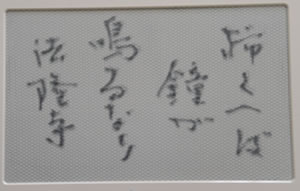 柿くへば
鐘が
鳴るなり
法隆寺